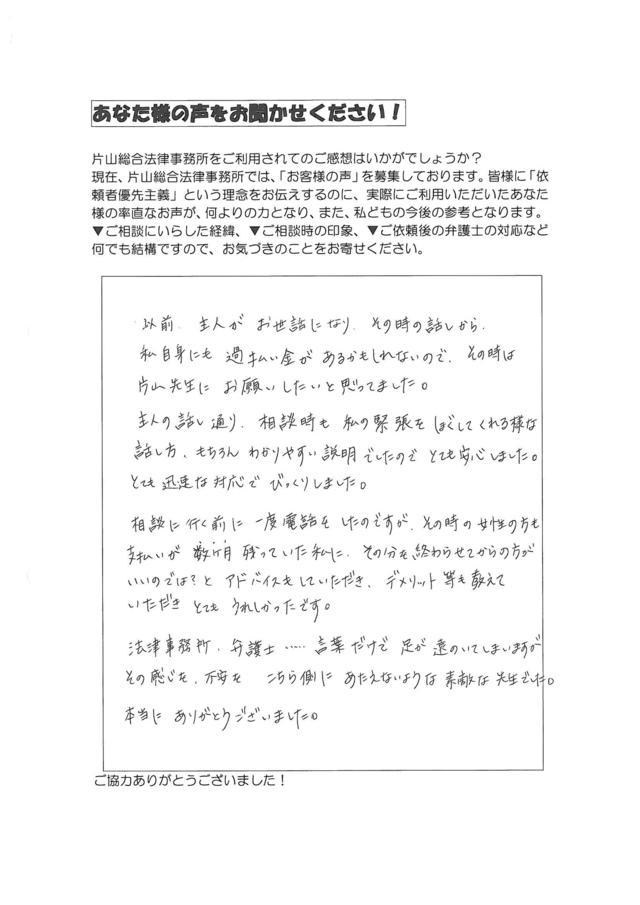 あなた様の声をお聞かせください！
片山総合法律事務所をご利用されてのご感想はいかがでしょうか？
現在、片山総合法律事務所では、「お客様の声」を募集しております。皆様に「依
頼者優先主義」という理念をお伝えするのに、実際にご利用いただいたあなた
様の率直なお声が、何よりの力となり、また、私どもの今後の参考となります。
▼ご相談にいらした経緯、▼ご相談時の印象、▼ご依頼後の弁護士の対応など
何でも結構ですので、お気づきのことをお寄せください。
以前、主人が お世話になり、その時の話しから、
私自身にも 過払い金が あるかもしれないので、その時は
片山先生に お願いしたいと思ってました。
主人の話し通り、相談時も 私の緊張を ほぐしてくれる様な
話し方、もちろん わかりやすい説明でしたので とても安心しました。
とても迅速な対応で びっくりしました。
相談に行く前に 一度電話をしたのですが、その時の女性の方も
支払いが 数ヶ月 残っていた私に、その分を終わらせてからの方が
いいのでは？と アドバイスをしていただき、デメリット等も教えて
いただき とてもうれしかったです。
法律事務所、弁護士……言葉だけで 足が 遠のいてしまいますが
その感じを、不安を こちら側に あたえないような 素敵な先生でした。
本当に ありがとうございました。
ご協力ありがとうございました！